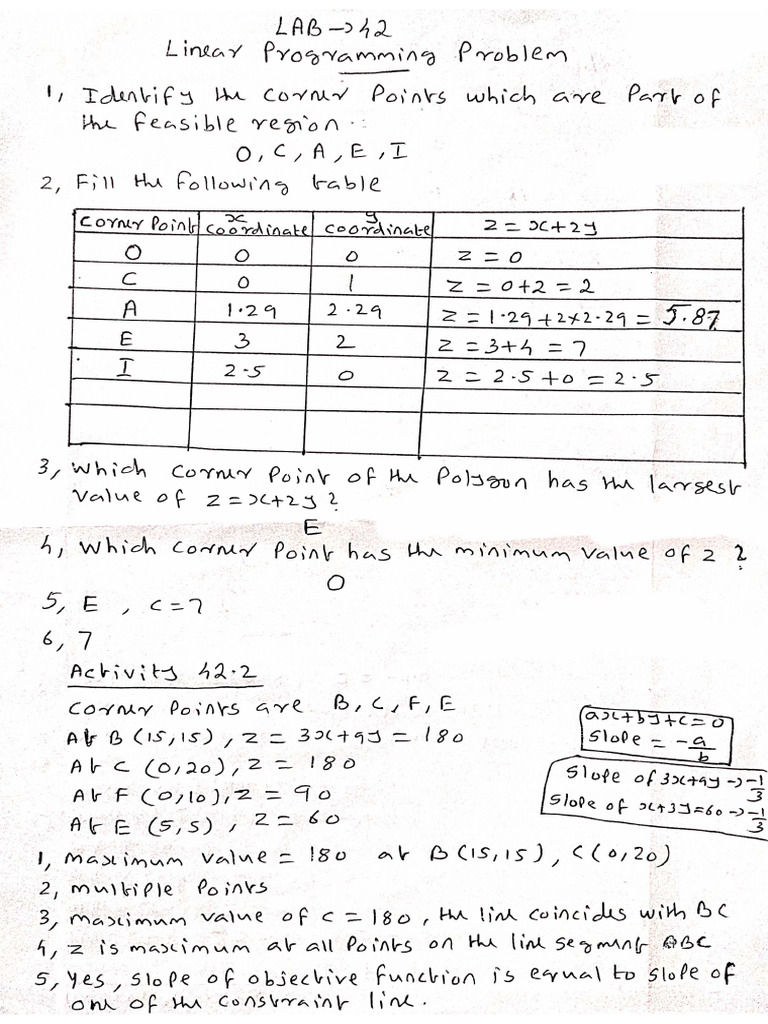 LAB → 42
Linear Programming Problem
1, Identify the corner Points which are Part of
the feasible region :
O, C, A, E, I
2, Fill the following table
Corner Point | x coordinate | y coordinate | z = x+2y
O | 0 | 0 | z = 0
C | 0 | 1 | z = 0+2 = 2
A | 1.29 | 2.29 | z = 1.29+2×2.29 = 5.87
E | 3 | 2 | z = 3+4 = 7
I | 2.5 | 0 | z = 2.5+0 = 2.5
3, Which corner Point of the Polygon has the largest
value of z = x+2y ?
E
4, Which corner Point has the minimum value of z ?
O
5, E , c=7
6, 7
Activity 42.2
Corner Points are B, C, F, E
At B (15,15), z = 3x+9y = 180
At C (0,20), z = 180
At F (0,10), z = 90
At E (5,5), z = 60
ax+by+c=0
Slope = -a/b
Slope of 3x+9y → -1/3
Slope of x+3y=60 → -1/3
1, maximum value = 180 at B(15,15), C(0,20)
2, multiple Points
3, maximum value of c = 180, the line coincides with BC
4, z is maximum at all Points on the line segment BC
5, Yes, slope of objective function is equal to slope of
one of the constraint line.